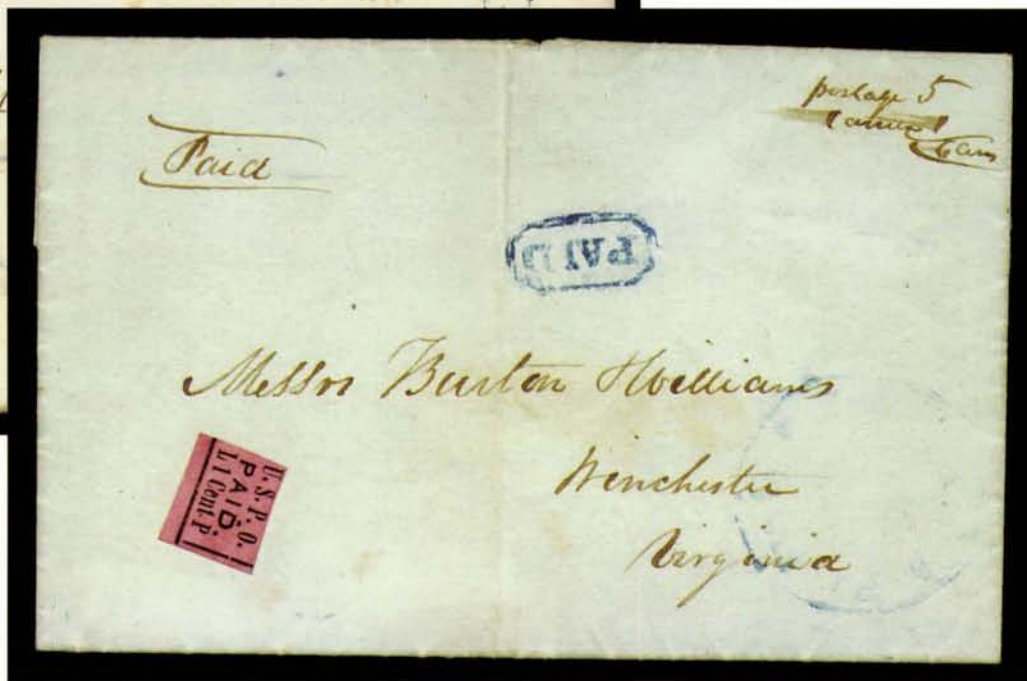 Paid
postage 5
PAID
Messrs Burton & Williams
Winchester
Virginia
U.S.P.O.
PAID
L 1 Cent P.